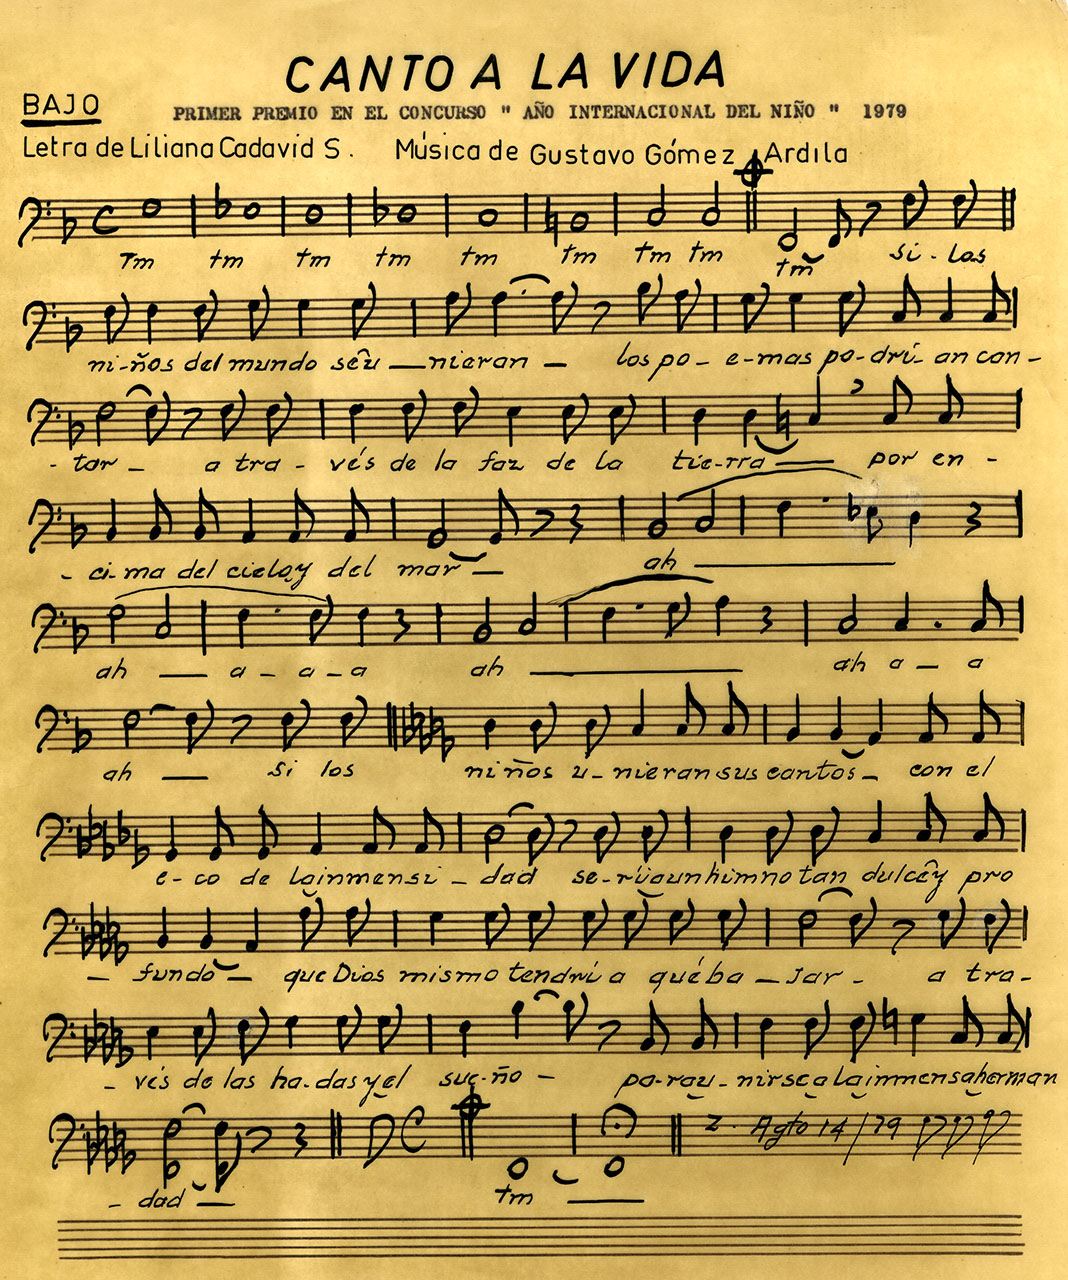 CANTO A LA VIDA
BAJO
PRIMER PREMIO EN EL CONCURSO " AÑO INTERNACIONAL DEL NIÑO " 1979
Letra de Liliana Cadavid S. Música de Gustavo Gómez Ardila
Tm tm tm tm tm tm tm tm tm si - los
ni-ños del mundo se u — nieran — los po - e-mas po-drí-an can-
- tar - a tra - vés de la faz de la tie-rra — por en -
- ci-ma del cielo y del mar — ah —
ah — a - a - a ah — ah a - a
ah — si los niños u-nieran sus cantos - con el
e-co de la inmensi - dad se-ría un himno tan dulce y pro
- fundo - que Dios mismo tendría qué ba - jar - a tra-
- vés de las ha-das y el sue-ño - para u-nirse a la inmensa herman
- dad — DC tm — 2. Agto 14/79